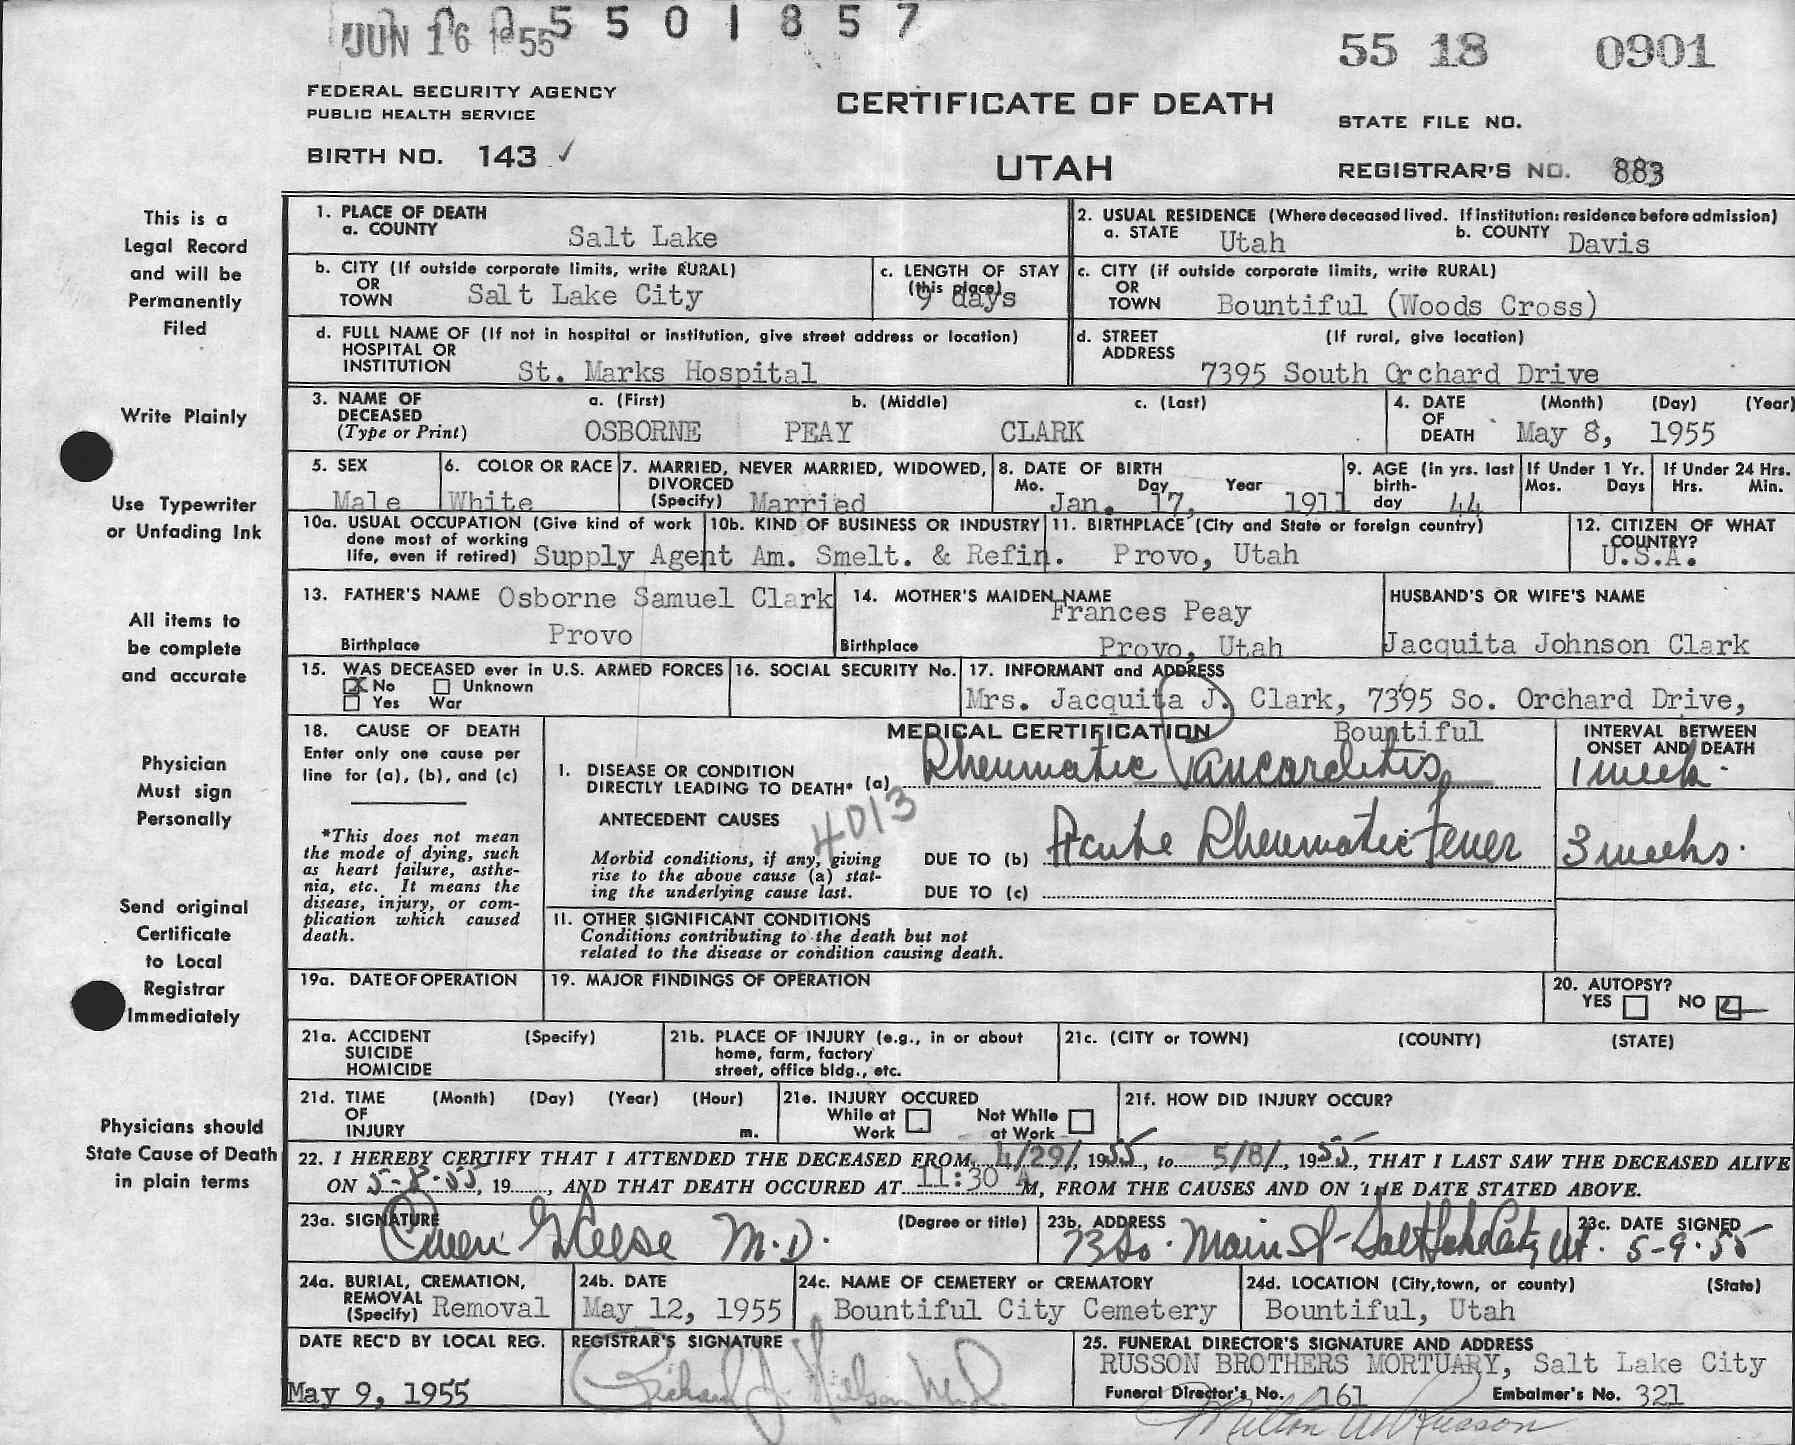 JUN 16 1955 5 5 0 1 8 5 7
55 18 0901
FEDERAL SECURITY AGENCY
PUBLIC HEALTH SERVICE
CERTIFICATE OF DEATH
STATE FILE NO.
BIRTH NO. 143 ✓
UTAH
REGISTRAR'S NO. 883
This is a
Legal Record
and will be
Permanently
Filed
Write Plainly
Use Typewriter
or Unfading Ink
All items to
be complete
and accurate
Physician
Must sign
Personally
Send original
Certificate
to Local
Registrar
Immediately
Physicians should
State Cause of Death
in plain terms
1. PLACE OF DEATH
a. COUNTY Salt Lake
2. USUAL RESIDENCE (Where deceased lived. If institution: residence before admission)
a. STATE Utah b. COUNTY Davis
b. CITY (If outside corporate limits, write RURAL)
OR
TOWN Salt Lake City
c. LENGTH OF STAY
(this place)
9 days
c. CITY (if outside corporate limits, write RURAL)
OR
TOWN Bountiful (Woods Cross)
d. FULL NAME OF (If not in hospital or institution, give street address or location)
HOSPITAL OR
INSTITUTION St. Marks Hospital
d. STREET (If rural, give location)
ADDRESS
7395 South Orchard Drive
3. NAME OF a. (First) b. (Middle) c. (Last)
DECEASED
(Type or Print) OSBORNE PEAY CLARK
4. DATE (Month) (Day) (Year)
OF
DEATH May 8, 1955
5. SEX
Male
6. COLOR OR RACE
White
7. MARRIED, NEVER MARRIED, WIDOWED,
DIVORCED
(Specify) Married
8. DATE OF BIRTH
Mo. Day Year
Jan. 17, 1911
9. AGE (In yrs. last
birth-
day 44
If Under 1 Yr.
Mos. Days
If Under 24 Hrs.
Hrs. Min.
10a. USUAL OCCUPATION (Give kind of work
done most of working
life, even if retired) Supply Agent
10b. KIND OF BUSINESS OR INDUSTRY
Am. Smelt. & Refin.
11. BIRTHPLACE (City and State or foreign country)
Provo, Utah
12. CITIZEN OF WHAT
COUNTRY?
U.S.A.
13. FATHER'S NAME Osborne Samuel Clark
Birthplace Provo
14. MOTHER'S MAIDEN NAME
Frances Peay
Birthplace Provo, Utah
HUSBAND'S OR WIFE'S NAME
Jacquita Johnson Clark
15. WAS DECEASED ever in U.S. ARMED FORCES
X No Unknown
Yes War
16. SOCIAL SECURITY No.
17. INFORMANT and ADDRESS
Mrs. Jacquita J. Clark, 7395 So. Orchard Drive,
Bountiful
18. CAUSE OF DEATH
Enter only one cause per
line for (a), (b), and (c)
*This does not mean
the mode of dying, such
as heart failure, asthe-
nia, etc. It means the
disease, injury, or com-
plication which caused
death.
MEDICAL CERTIFICATION
INTERVAL BETWEEN
ONSET AND DEATH
I. DISEASE OR CONDITION
DIRECTLY LEADING TO DEATH* (a) Rheumatic Pancarditis 1 week.
4013
ANTECEDENT CAUSES
Morbid conditions, if any, giving
rise to the above cause (a) stat-
ing the underlying cause last.
DUE TO (b) Acute Rheumatic Fever 3 weeks.
DUE TO (c)
II. OTHER SIGNIFICANT CONDITIONS
Conditions contributing to the death but not
related to the disease or condition causing death.
19a. DATE OF OPERATION
19. MAJOR FINDINGS OF OPERATION
20. AUTOPSY?
YES NO
21a. ACCIDENT (Specify)
SUICIDE
HOMICIDE
21b. PLACE OF INJURY (e.g., in or about
home, farm, factory
street, office bldg., etc.
21c. (CITY or TOWN) (COUNTY) (STATE)
21d. TIME (Month) (Day) (Year) (Hour)
OF
INJURY m.
21e. INJURY OCCURED
While at Not While
Work at Work
21f. HOW DID INJURY OCCUR?
22. I HEREBY CERTIFY THAT I ATTENDED THE DECEASED FROM 4/29/, 1955, to 5/8/, 1955, THAT I LAST SAW THE DECEASED ALIVE
ON 5-8-55, 19....., AND THAT DEATH OCCURED AT 11:30 A M, FROM THE CAUSES AND ON THE DATE STATED ABOVE.
23a. SIGNATURE (Degree or title)
Owen G Reese M.D.
23b. ADDRESS
73 So. Main St - Salt Lake City Ut.
23c. DATE SIGNED
5-9-55
24a. BURIAL, CREMATION,
REMOVAL
(Specify) Removal
24b. DATE
May 12, 1955
24c. NAME OF CEMETERY or CREMATORY
Bountiful City Cemetery
24d. LOCATION (City, town, or county) (State)
Bountiful, Utah
DATE REC'D BY LOCAL REG.
May 9, 1955
REGISTRAR'S SIGNATURE
Richard J. Nelson M.D.
25. FUNERAL DIRECTOR'S SIGNATURE AND ADDRESS
RUSSON BROTHERS MORTUARY, Salt Lake City
Funeral Director's No. 161 Embalmer's No. 321
Milton W Russon